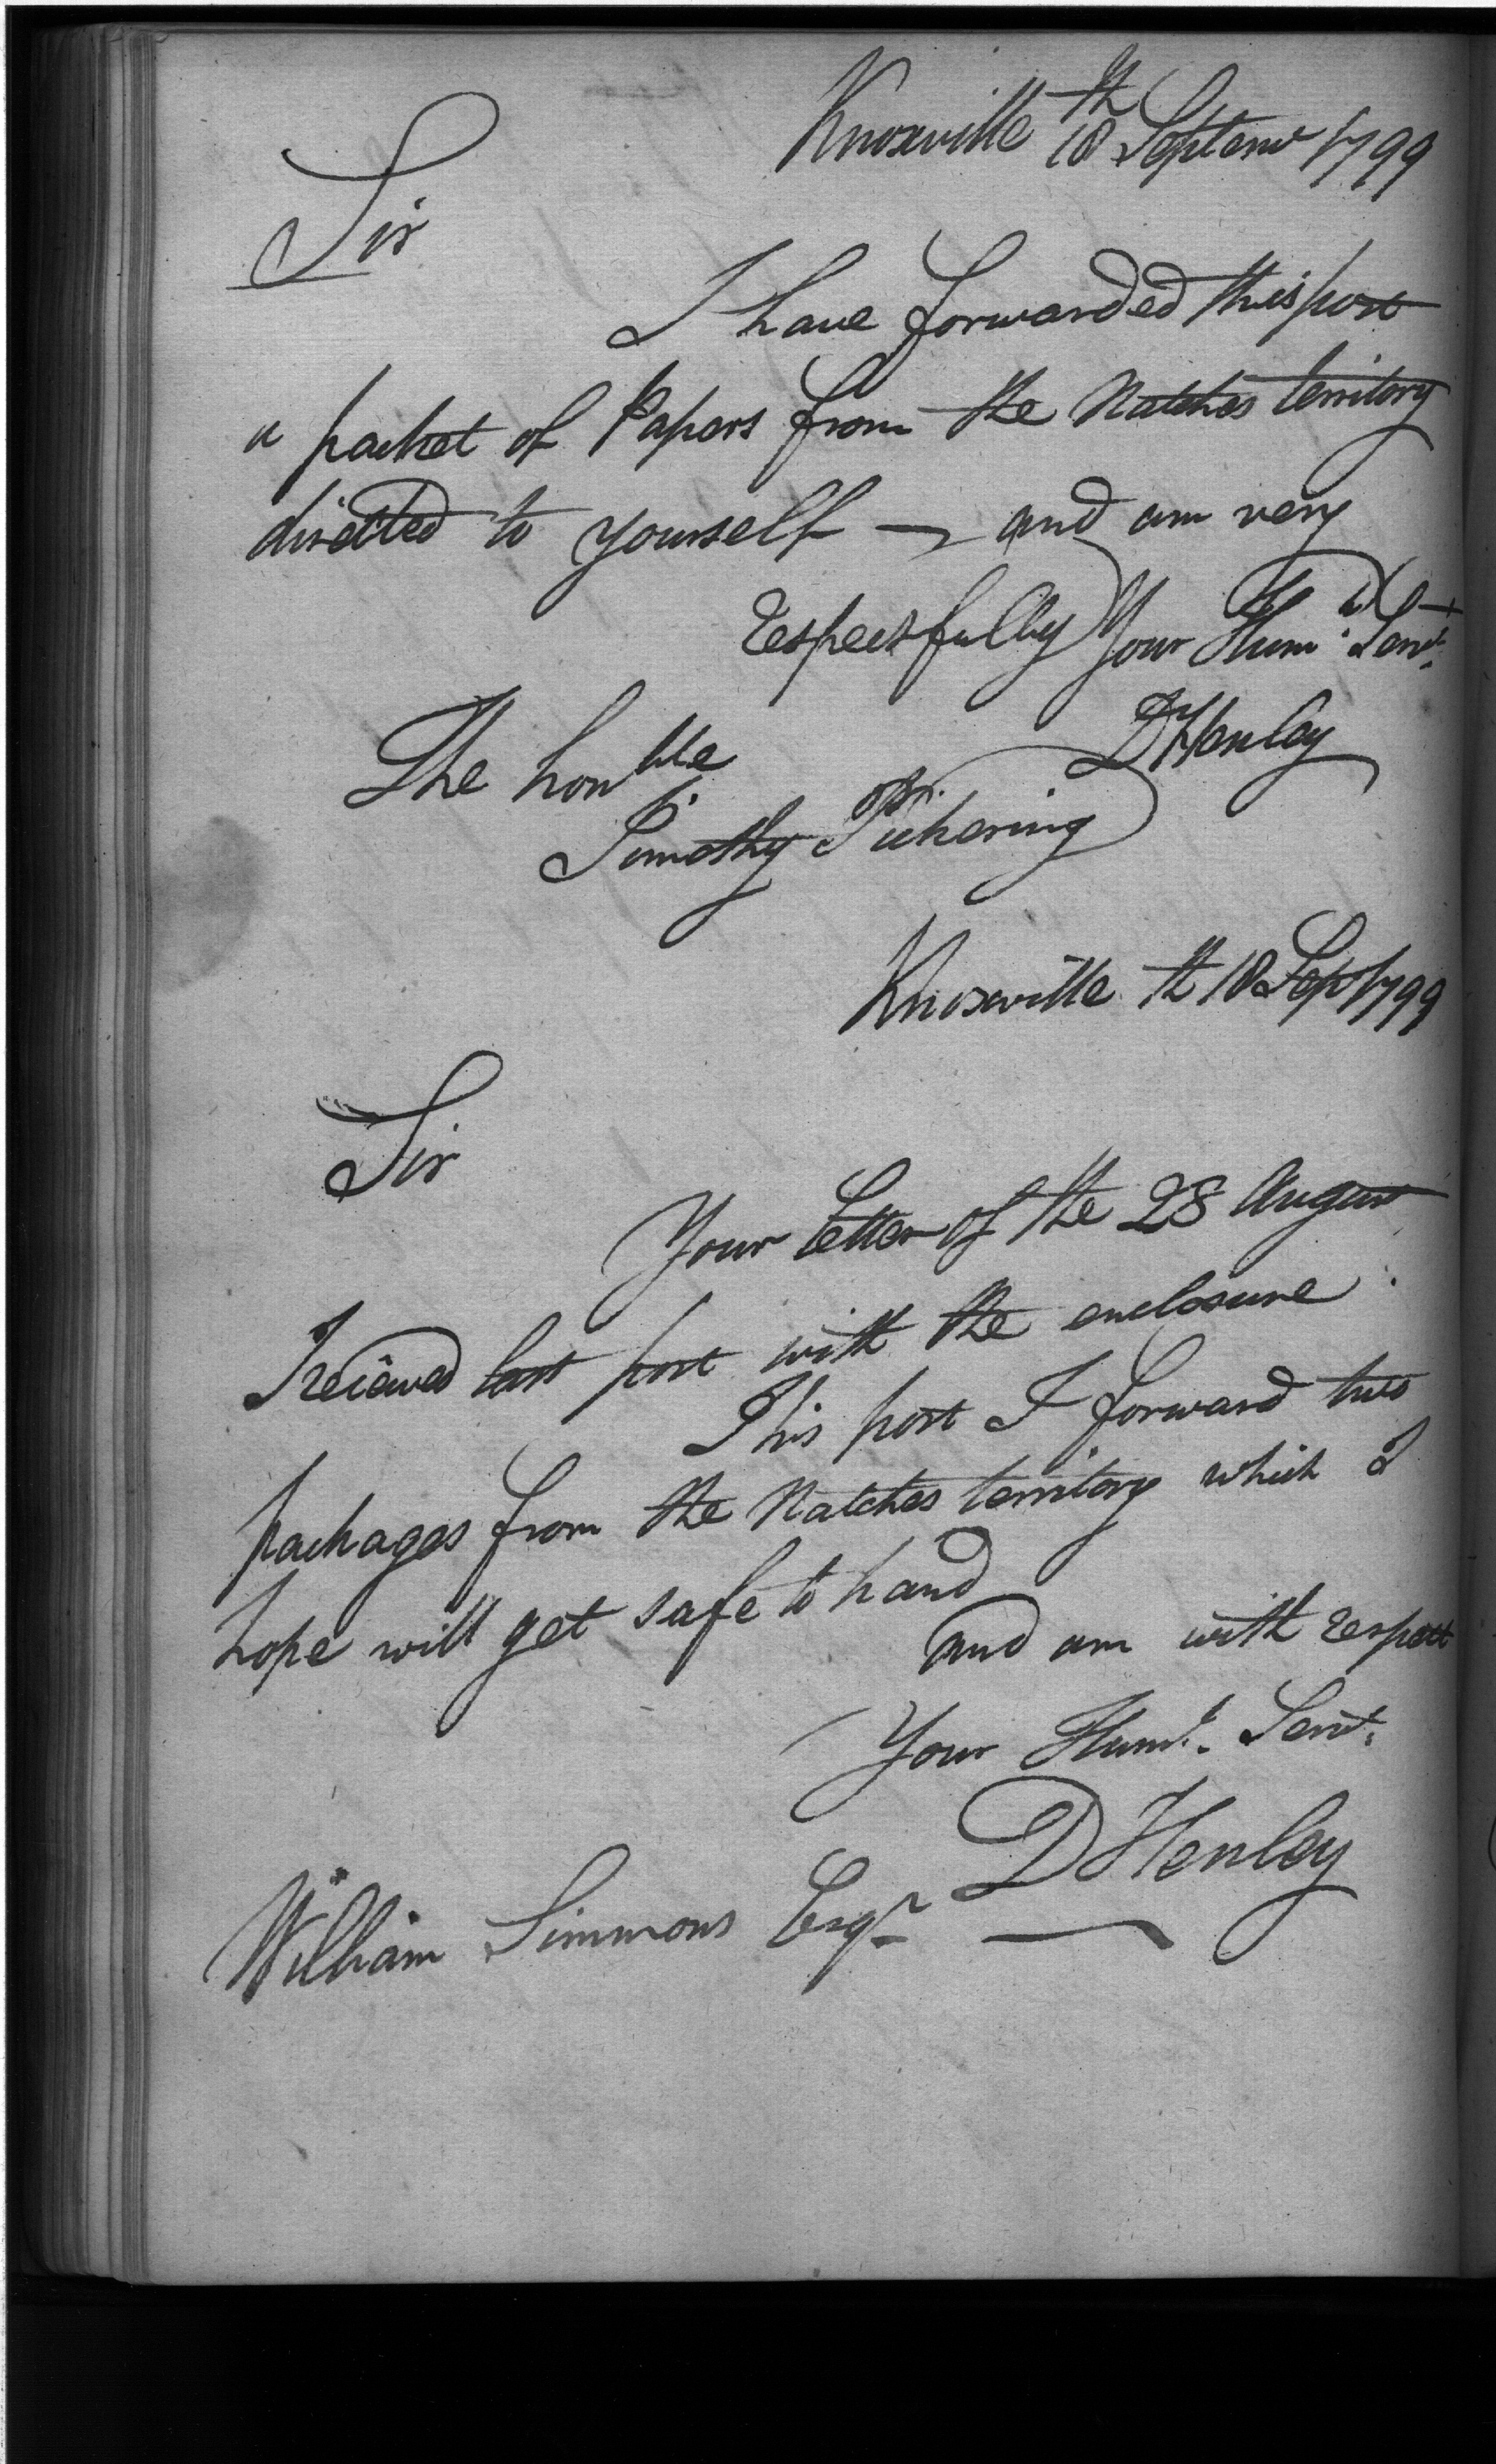 Knoxville th 18 Septemr 1799
Sir
I have forwarded this post
a packet of Papers from the Natches territory
directed to yourself — and am very
respectfully Your Hume. Servt.
D Henley
The honble
Timothy Pickering
Knoxville th 18 Sep 1799
Sir
Your letter of the 28 August
I recieved last post with the enclosure.
This post I forward two
packages from the Natches territory which I
hope will get safe to hand
and am with respect
Your Humb. Servt.
D Henley
William Simmons Esqr —